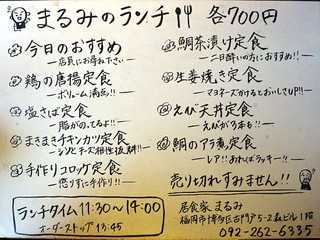 まるみのランチ 各700円
今日のおすすめ
―店員にお尋ね下さい―
鶏の唐揚定食
―ボリューム満点!!―
塩さば定食
―脂がのってるよ!!―
まきまきチキンカツ定食
―シソとチーズ相性抜群!!―
手作りコロッケ定食
―怠りずに手作り!!―
鯛茶漬け定食
―二日酔いの方におすすめ!!―
生姜焼き定食
―マネーズかけるとおいしさUP!!―
えび天丼定食
―えびが3本も!!―
鯛のアラ煮定食
―レア!!あればラッキー!!―
売り切れすみません!!
ランチタイム 11:30〜14:00
オーダーストップ 13:45
居食家 まるみ
福岡市博多区古門戸5-2森ビル1階
092-262-6335